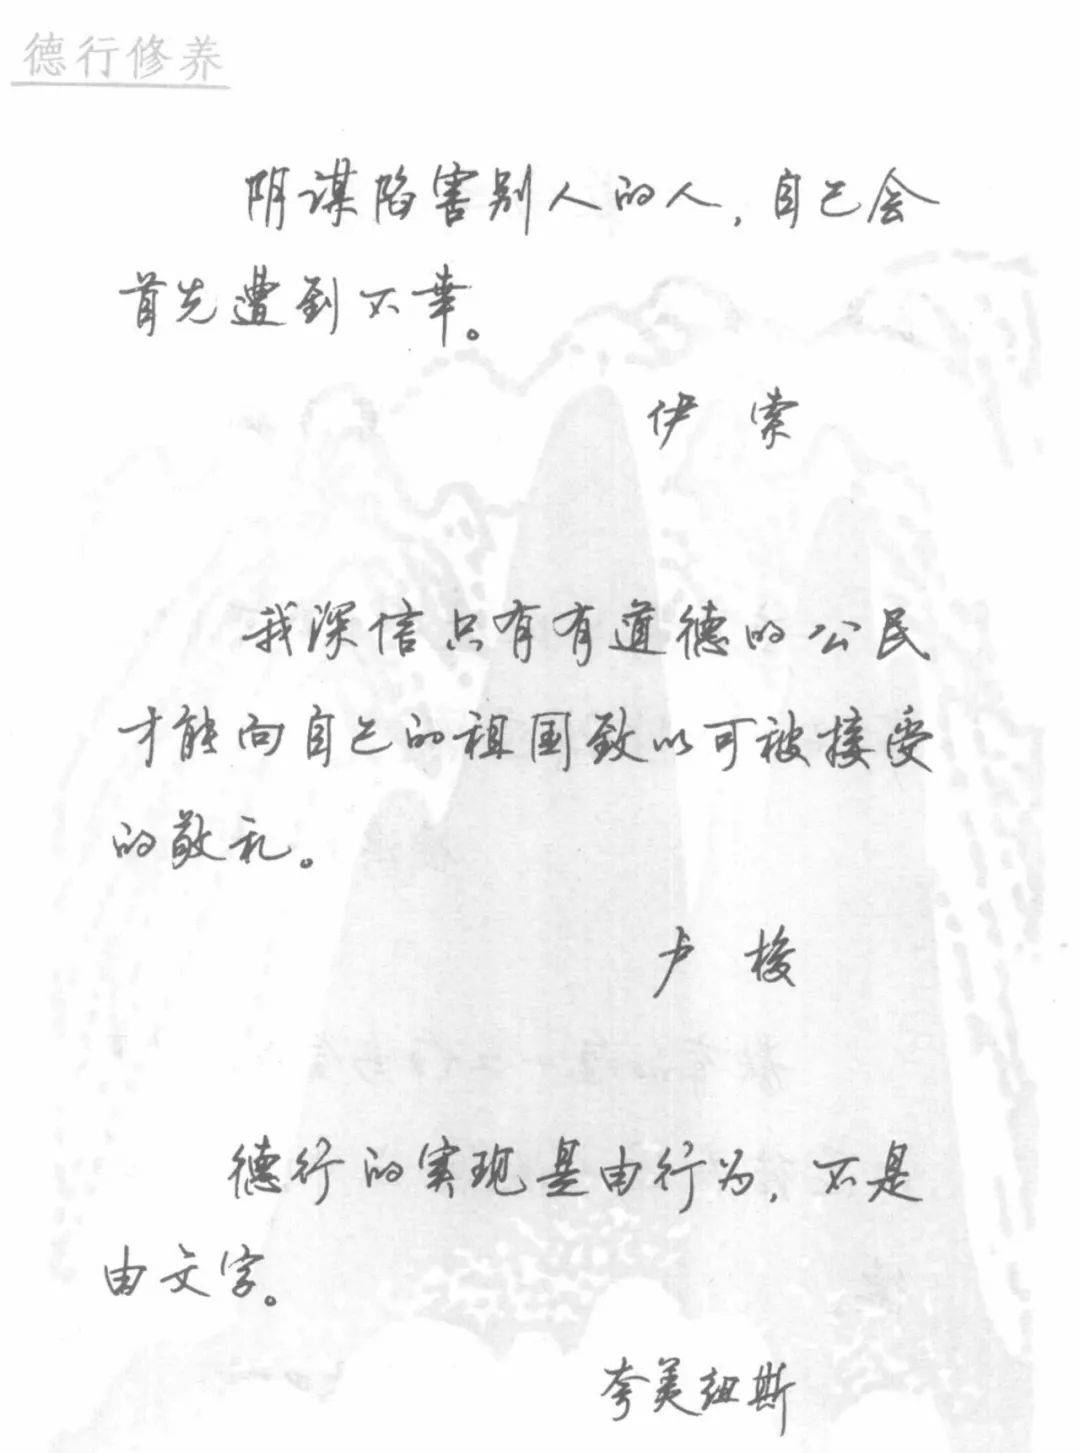 德行修养
阴谋陷害别人的人，自己会
首先遭到不幸。
伊 索
我深信只有有道德的公民
才能向自己的祖国致以可被接受
的敬礼。
卢 梭
德行的实现是由行为，不是
由文字。
夸美纽斯